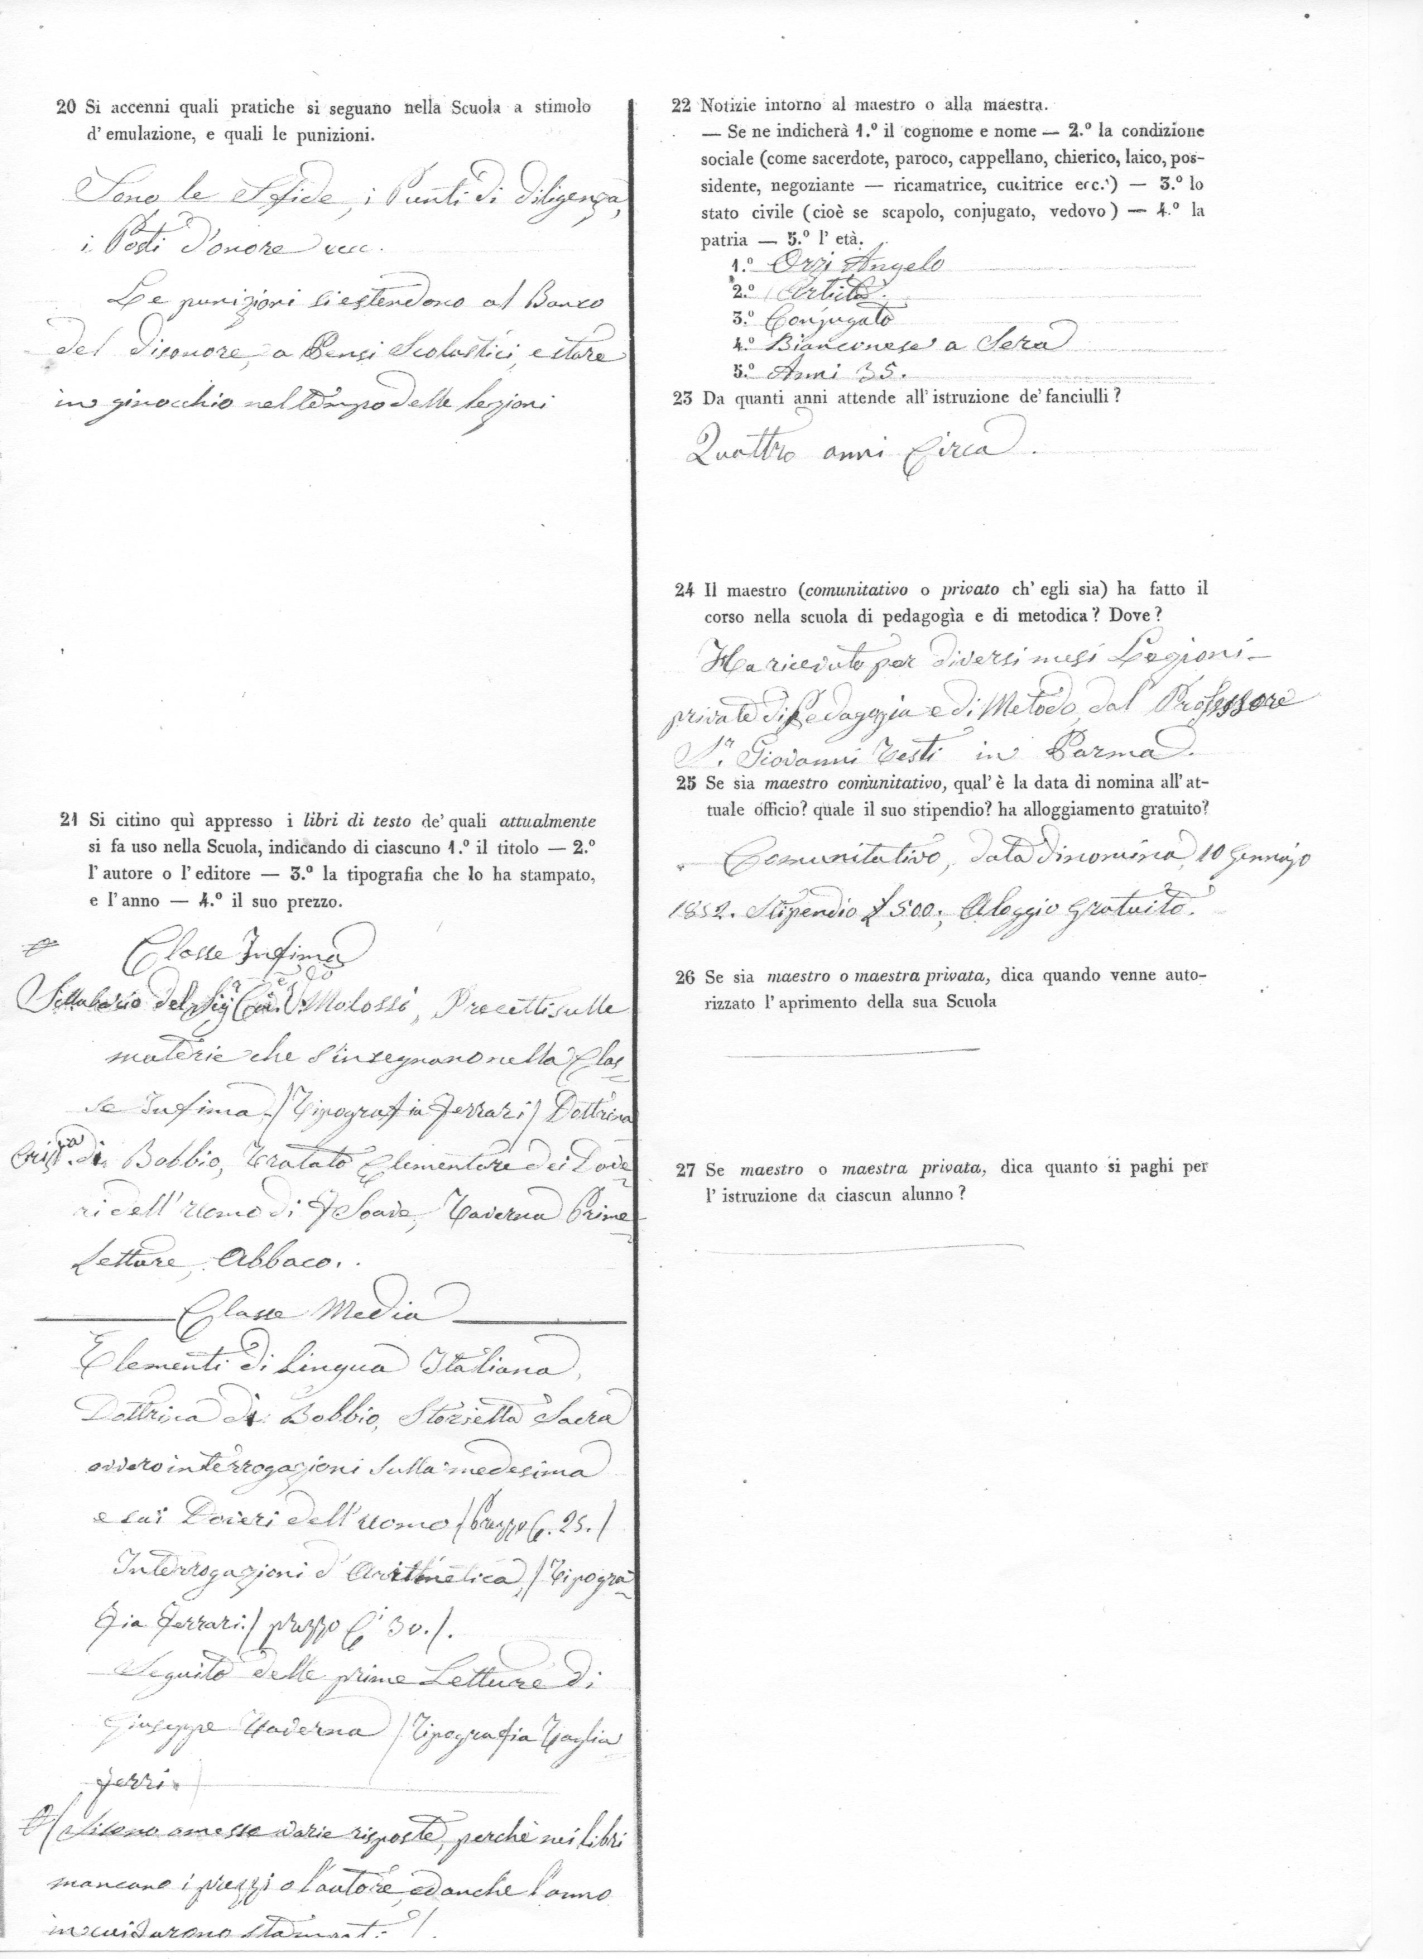 20 Si accenni quali pratiche si seguano nella Scuola a stimolo
d' emulazione, e quali le punizioni.
Sono le Sfide, i Punti di diligenza,
i Posti d'onore ecc.
Le punizioni si estendono al Banco
del disonore, a Pensi Scolastici, e stare
in ginocchio nel tempo delle lezioni
21 Si citino quì appresso i libri di testo de' quali attualmente
si fa uso nella Scuola, indicando di ciascuno 1.º il titolo — 2.º
l' autore o l' editore — 3.º la tipografia che lo ha stampato,
e l' anno — 4.º il suo prezzo.
Classe Infima
Sillabario del Sig. Molossi, Precetti sulle
materie che s'insegnano nella Clas-
se Infima /Tipografia Ferrari/ Dottrina
Crist.na di Bobbio, Tratato Elementare dei Dove-
ri dell'uomo di F Soave, Taverna Prime
Letture, Abbaco.
Classe Media
Elementi di Lingua Italiana,
Dottrina di Bobbio, Storietta Sacra
ovvero interrogazioni sulla medesima
e sui Doveri dell'uomo /Prezzo C. 25./
Interrogazioni d'Aritmetica, /Tipogra-
fia Ferrari:/ prezzo C. 30./.
Seguito delle prime Letture di
Giuseppe Taverna /Tipografia Taglia
ferri./
/Si sono omesse varie risposte, perchè nei libri
mancano i prezzi o l'autore, ed anche l'anno
in cui furono stampati./.
22 Notizie intorno al maestro o alla maestra.
— Se ne indicherà 1.º il cognome e nome — 2.º la condizione
sociale (come sacerdote, paroco, cappellano, chierico, laico, pos-
sidente, negoziante — ricamatrice, cucitrice ecc.) — 3.º lo
stato civile (cioè se scapolo, conjugato, vedovo) — 4.º la
patria — 5.º l' età.
1.º Orzi Angelo
2.º Artista.
3.º Conjugato
4.º Bianconese a Sera
5.º Anni 35.
23 Da quanti anni attende all' istruzione de' fanciulli?
Quattro anni Circa.
24 Il maestro (comunitativo o privato ch' egli sia) ha fatto il
corso nella scuola di pedagogìa e di metodica? Dove?
Ha ricevuto per diversi mesi Lezioni
private di Pedagogia e di Metodo, dal Professore
S.r Giovanni Testi in Parma.
25 Se sia maestro comunitativo, qual' è la data di nomina all' at-
tuale officio? quale il suo stipendio? ha alloggiamento gratuito?
Comunitativo, data di nomina, 10 Gennajo
1852. Stipendio £ 500, Aloggio gratuito.
26 Se sia maestro o maestra privata, dica quando venne auto-
rizzato l' aprimento della sua Scuola
27 Se maestro o maestra privata, dica quanto si paghi per
l' istruzione da ciascun alunno?